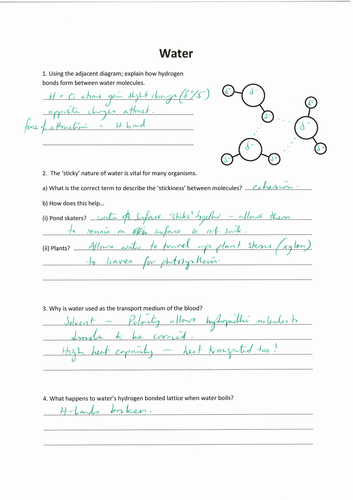 Water
1. Using the adjacent diagram; explain how hydrogen
bonds form between water molecules.
H + O atoms gain slight charge (δ⁺/δ⁻)
opposite charges attract.
force of attraction = H bond.
δ⁺ δ⁻ δ⁺ δ⁻ δ⁺ δ⁺ δ⁻ δ⁺
2. The 'sticky' nature of water is vital for many organisms.
a) What is the correct term to describe the 'stickiness' between molecules? cohesion.
b) How does this help…
(i) Pond skaters? water at surface 'sticks' together – allows them
to remain on surface & not sink.
(ii) Plants? Allows water to travel up plant stems (xylem)
to leaves for photosynthesis.
3. Why is water used as the transport medium of the blood?
Solvent – Polarity allows hydrophilic molecules to
dissolve & be carried.
High heat capacity – heat transported too!
4. What happens to water's hydrogen bonded lattice when water boils?
H-bonds broken.